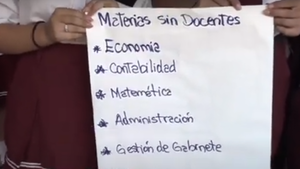 Materias sin Docentes
* Economia
* Contabilidad
* Matemática
* Administración
* Gestión de Gabinete